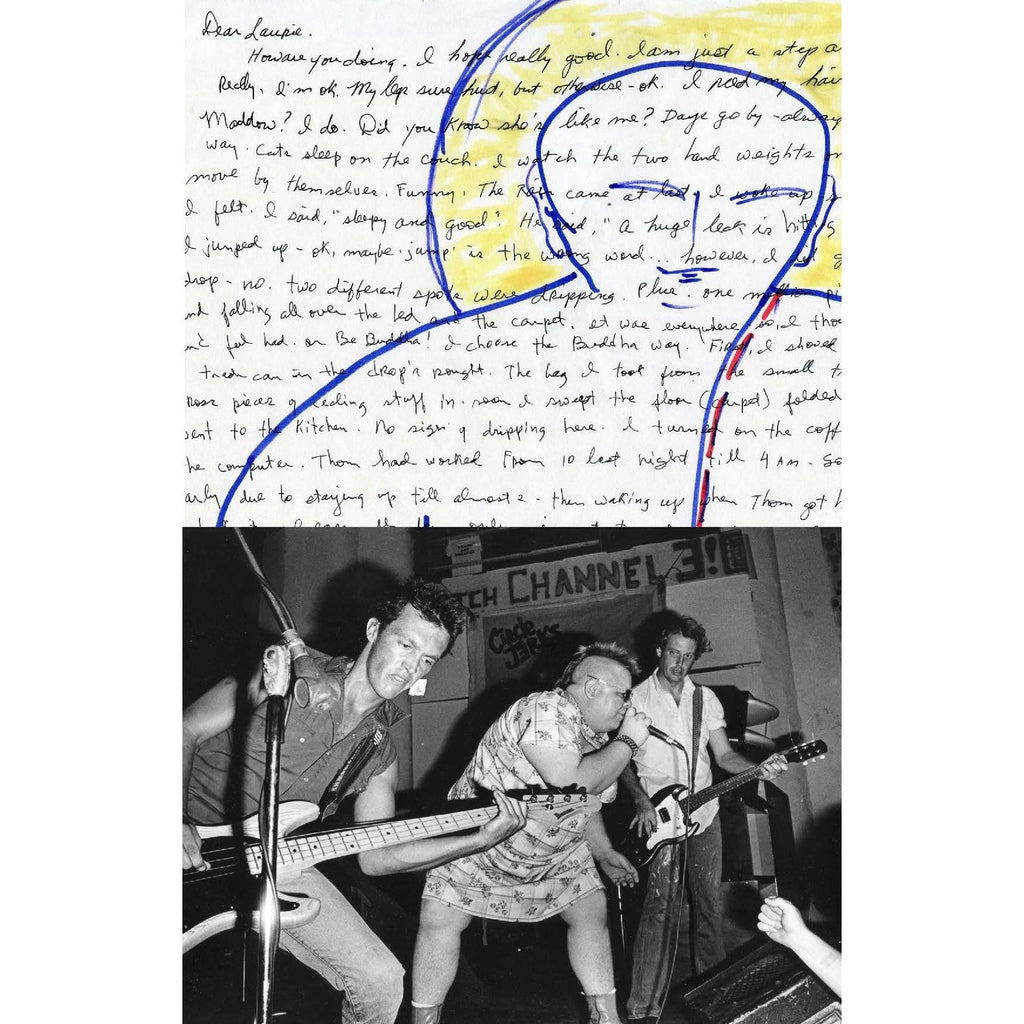 Dear Laurie.
How are you doing. I hope really good. I am just a step a
Really, I'm ok. My legs sure hurt, but otherwise - ok. I my hair
Maddow? I do. Did you know she's like me? Days go by - always
way. Cats sleep on the couch. I watch the two hand weights on
move by themselves. Funny. The Rain came at last. I woke up s
I felt. I said, "sleepy and good". He said, "a huge leak is hitting
I jumped up - ok, maybe "jump" is the wrong word... however, I
drop - no. two different spots were dripping. Plus. one million pi
nd falling all over the bed and the carpet. it was everywhere so, I tho
feel bad. or Be Buddha! I choose the Buddha way. First, I shoved
trash can in the drop'n The bag I took from the small t
pieces of ceiling stuff in. soon I swept the floor (carpet) folded
went to the Kitchen. No sign of dripping here. I turned on the coff
he computer. Thom had worked From 10 last night till 4 AM. So
arly due to staying up till almost 2 - then waking up when Thom got h
TCH CHANNEL 3!
Circle
JERKS